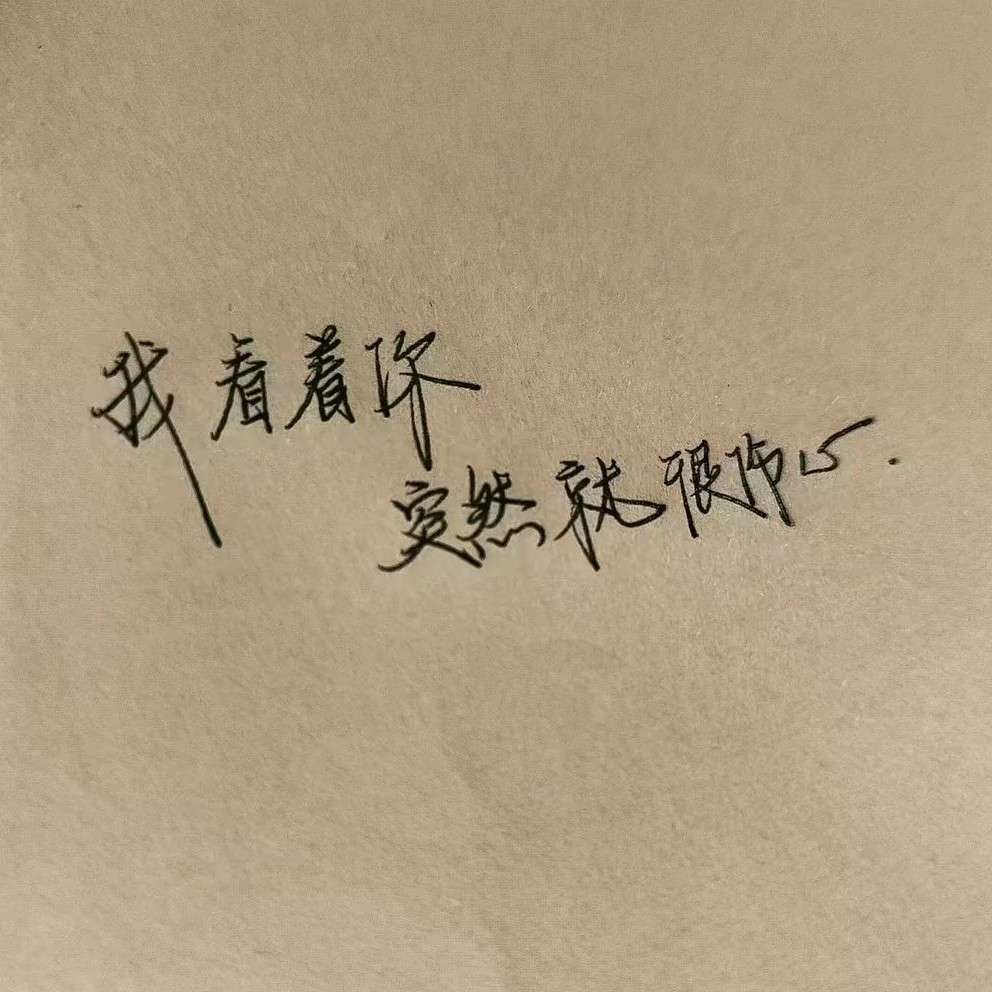 我看着你
突然就很伤心.